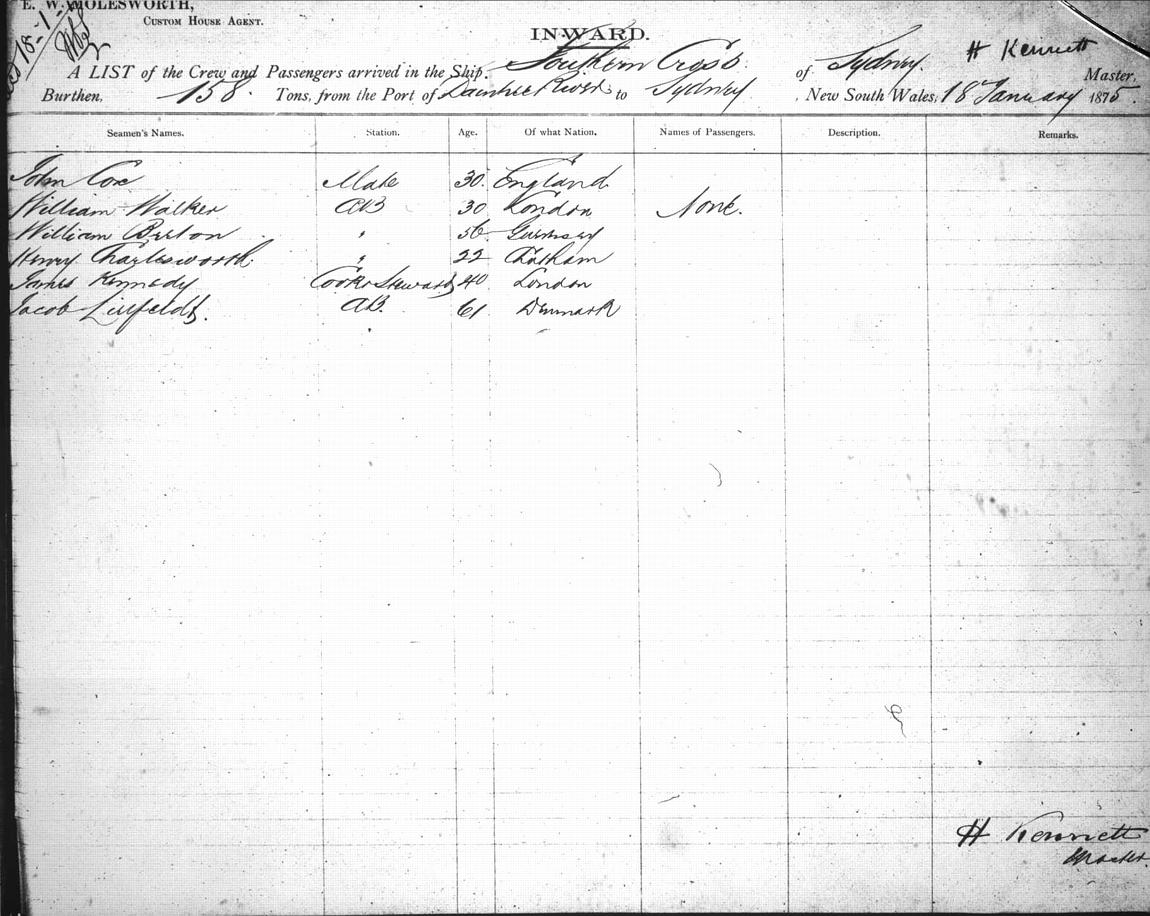 E. W. MOLESWORTH,
CUSTOM HOUSE AGENT.
18-1-
INWARD.
A LIST of the Crew and Passengers arrived in the Ship. Southern Cross of Sydney. H Kennett Master,
Burthen, 158 Tons, from the Port of River to Sydney , New South Wales, 18 January 1875.
Seamen's Names. Station. Age. Of what Nation. Names of Passengers. Description. Remarks.
John Cox Mate 30. England
William Walker AB 30 London None.
William Breton " 56 Guernsey
Henry Charlesworth " 22 Chatham
James Kennedy Cook & Steward 40 London
Jacob AB. 61 Denmark
H Kennett
Master.